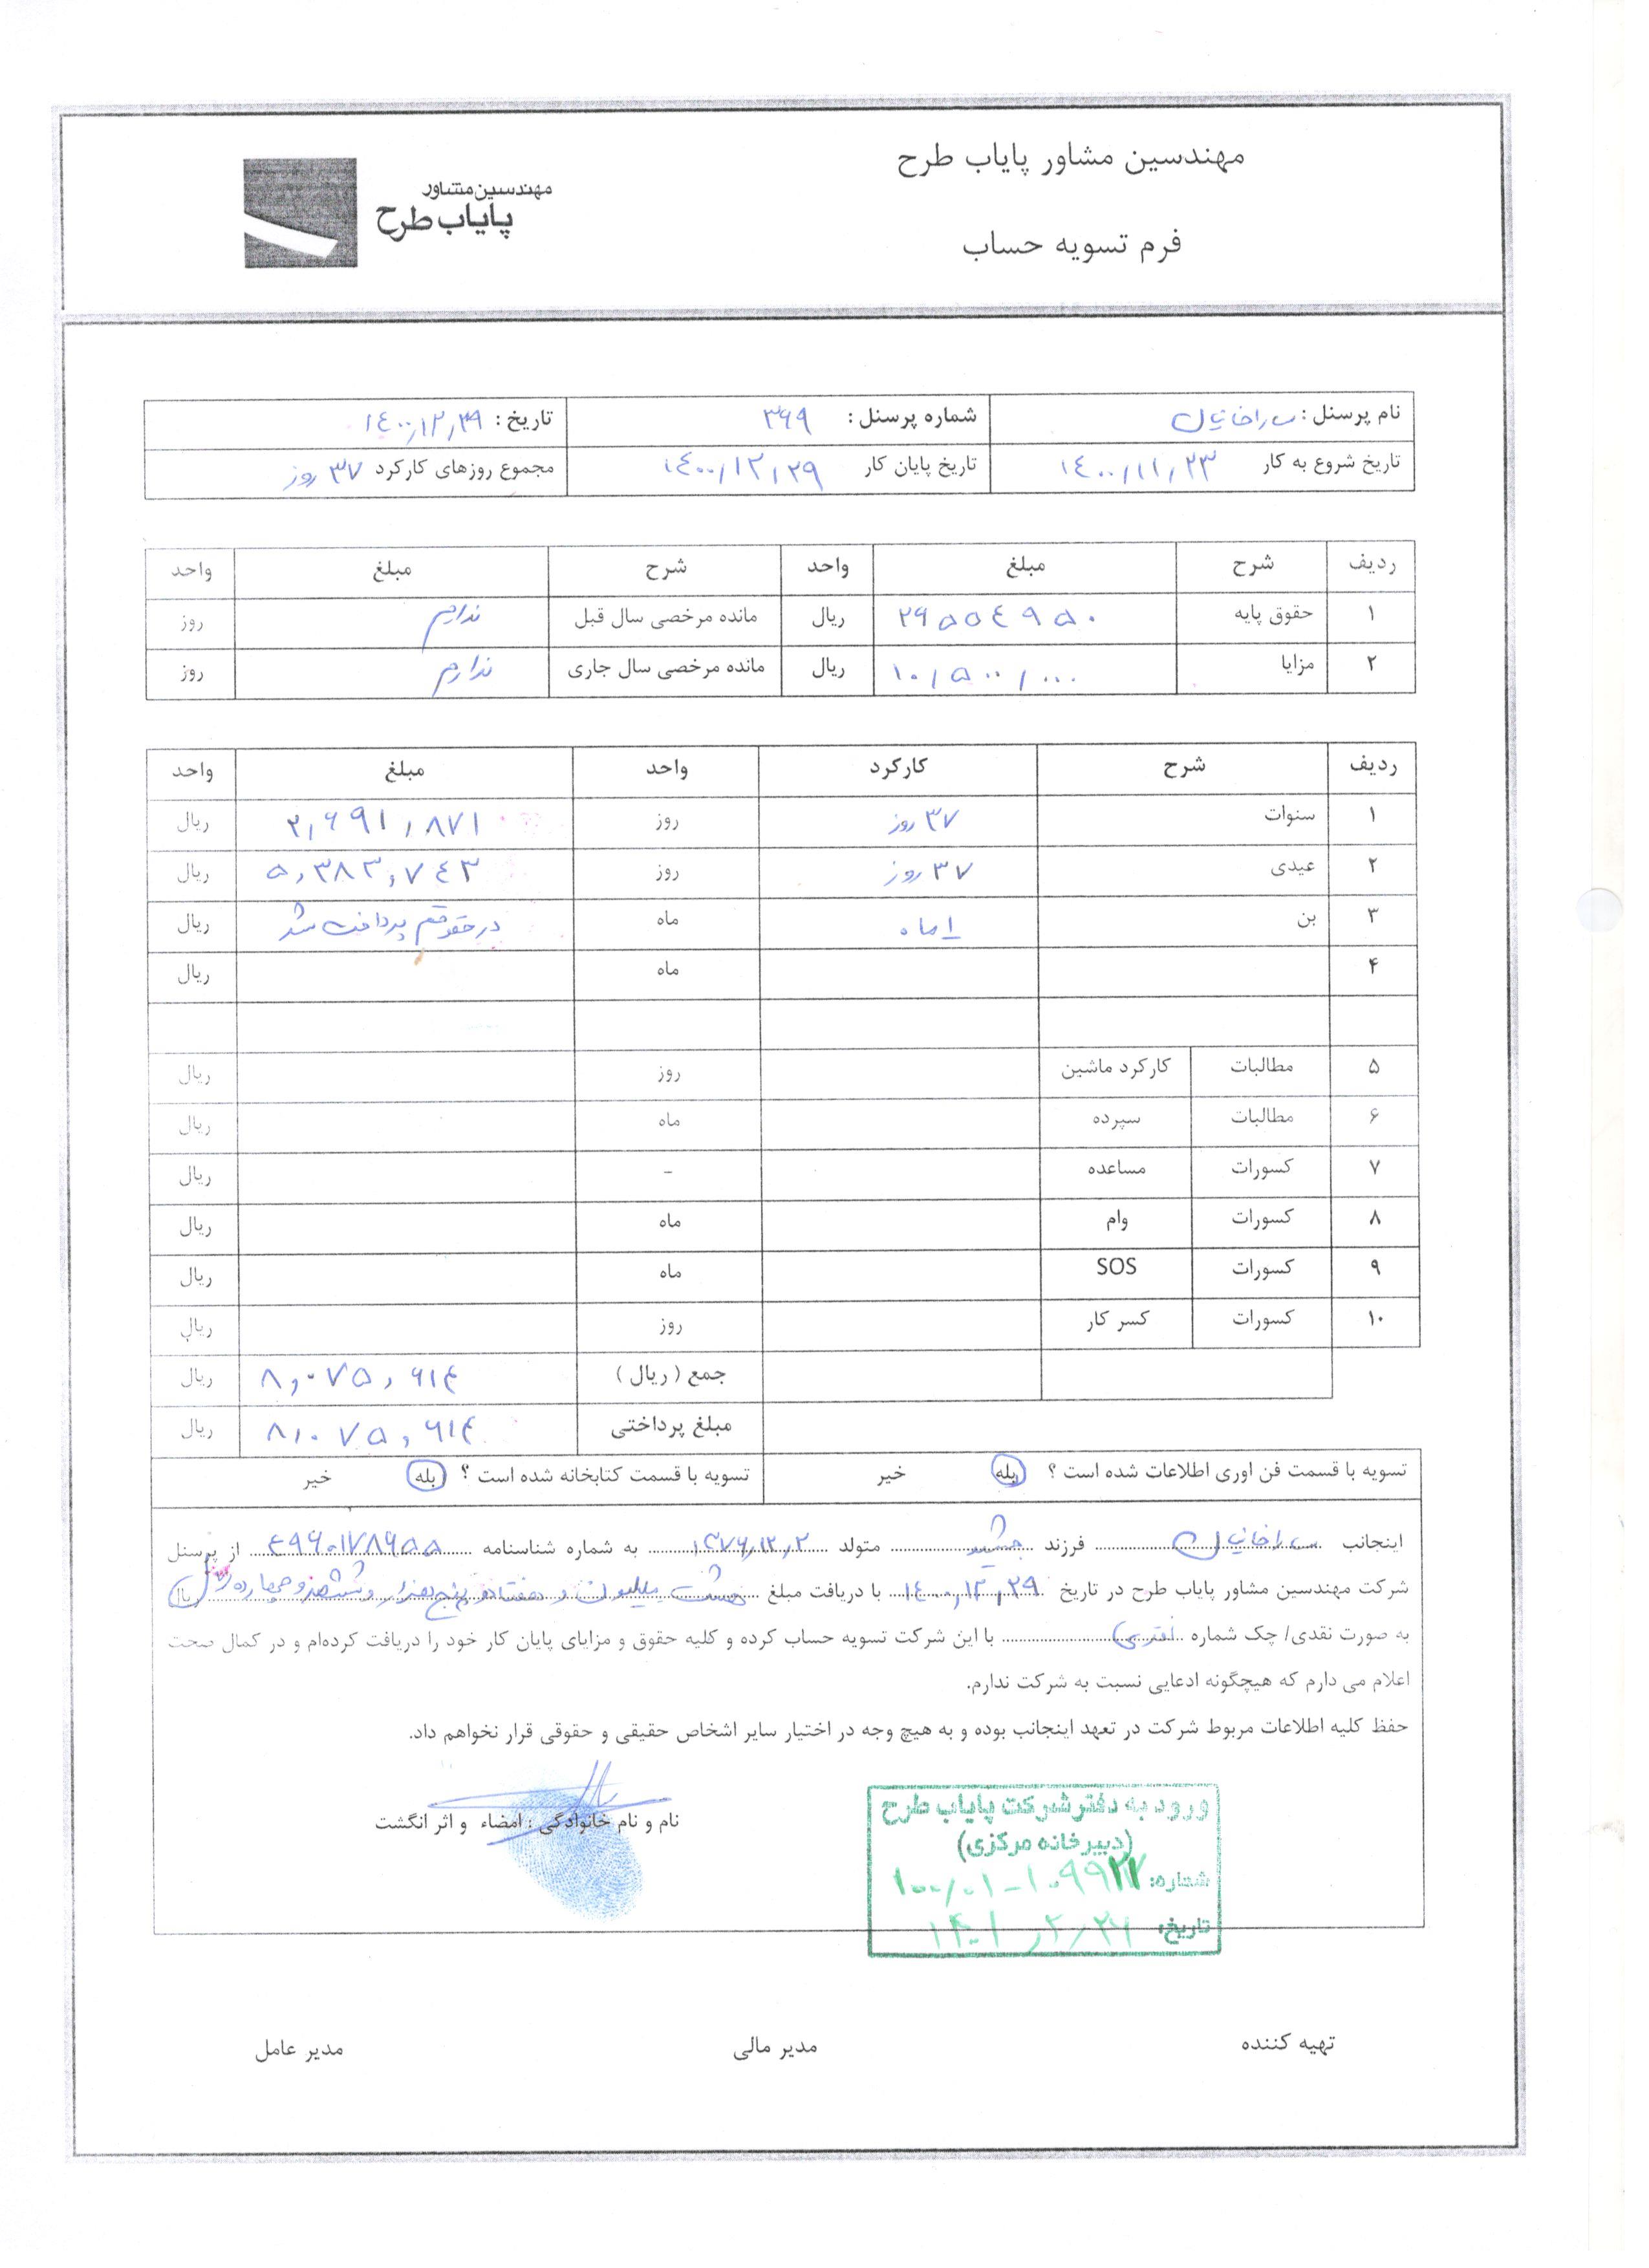 مهندسین مشاور پایاب طرح
مهندسین مشاور
پایاب طرح
فرم تسویه حساب
نام پرسنل : شماره پرسنل : ۳۶۹ تاریخ : ۱۴۰۰,۱۲,۲۹
تاریخ شروع به کار ۱۴۰۰/۱۱/۲۳ تاریخ پایان کار ۱۴۰۰/۱۲/۲۹ مجموع روزهای کارکرد ۳۷ روز
ردیف شرح مبلغ واحد شرح مبلغ واحد
۱ حقوق پایه ۲۶۵۵۴۹۵۰ ریال مانده مرخصی سال قبل ندارم روز
۲ مزایا ۱۰/۵۰۰/۰۰۰ ریال مانده مرخصی سال جاری ندارم روز
ردیف شرح کارکرد واحد مبلغ واحد
۱ سنوات ۳۷ روز روز ۲,۶۹۱,۸۷۱ ریال
۲ عیدی ۳۷ روز روز ۵,۳۸۳,۷۴۳ ریال
۳ بن ۱ماه ماه در حقوقم پرداخت شد ریال
۴ ماه ریال
۵ مطالبات کارکرد ماشین روز ریال
۶ مطالبات سپرده ماه ریال
۷ کسورات مساعده - ریال
۸ کسورات وام ماه ریال
۹ کسورات SOS ماه ریال
۱۰ کسورات کسر کار روز ریال
جمع ( ریال ) ۸,۰۷۵,۶۱۴ ریال
مبلغ پرداختی ۸,۰۷۵,۶۱۴ ریال
تسویه با قسمت فن اوری اطلاعات شده است ؟ بله خیر تسویه با قسمت کتابخانه شده است ؟ بله خیر
اینجانب فرزند جمشید متولد ۱۳۷۶,۱۲,۲ به شماره شناسنامه ۴۹۶۰۱۷۸۶۵۵ از پرسنل
شرکت مهندسین مشاور پایاب طرح در تاریخ ۱۴۰۰,۱۲,۲۹ با دریافت مبلغ هشت میلیون و هفتاد و پنج هزار و ششصد و چهارده ریال
به صورت نقدی/ چک شماره با این شرکت تسویه حساب کرده و کلیه حقوق و مزایای پایان کار خود را دریافت کرده‌ام و در کمال صحت
اعلام می دارم که هیچگونه ادعایی نسبت به شرکت ندارم.
حفظ کلیه اطلاعات مربوط شرکت در تعهد اینجانب بوده و به هیچ وجه در اختیار سایر اشخاص حقیقی و حقوقی قرار نخواهم داد.
نام و نام خانوادگی : امضاء و اثر انگشت
ورود به دفتر شرکت پایاب طرح
(دبیرخانه مرکزی)
شماره:
تاریخ: ۱۴۰۱/۲/۲۶
تهیه کننده مدیر مالی مدیر عامل